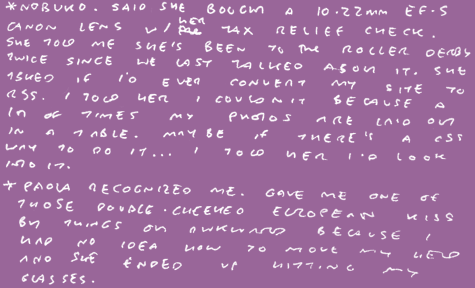 *NOBUKO. SAID SHE BOUGHT A 10-22MM EF-S
CANON LENS W/ HER TAX RELIEF CHECK.
SHE TOLD ME SHE'S BEEN TO THE ROLLER DERBY
TWICE SINCE WE LAST TALKED ABOUT IT. SHE
ASKED IF I'D EVER CONVERT MY SITE TO
RSS. I TOLD HER I COULDN'T BECAUSE A
LOT OF TIMES MY PHOTOS ARE LAID OUT
IN A TABLE. MAYBE IF THERE'S A CSS
WAY TO DO IT... I TOLD HER I'D LOOK
INTO IT.
* PAOLA RECOGNIZED ME. GAVE ME ONE OF
THOSE DOUBLE-CHEEKED EUROPEAN KISS
THINGS AWKWARD BECAUSE I
HAD NO IDEA HOW TO MOVE MY HEAD
AND SHE ENDED UP HITTING MY
GLASSES.